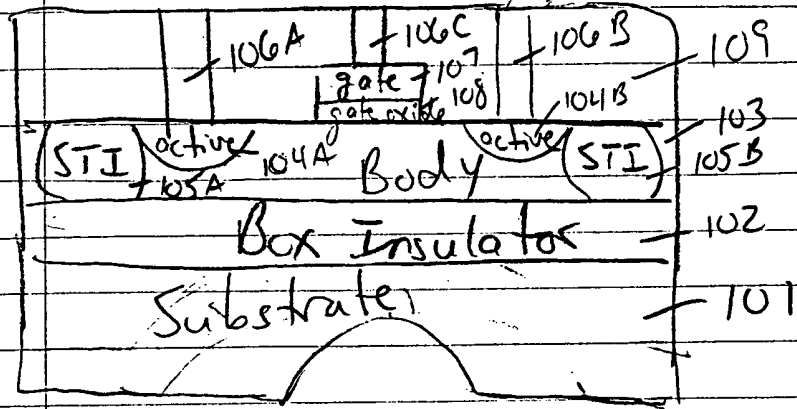 106A 106C 106B
gate 107 109
gate oxide 108 104B
STI active 104A active STI 103
105A Body 105B
Box Insulator 102
Substrate 101